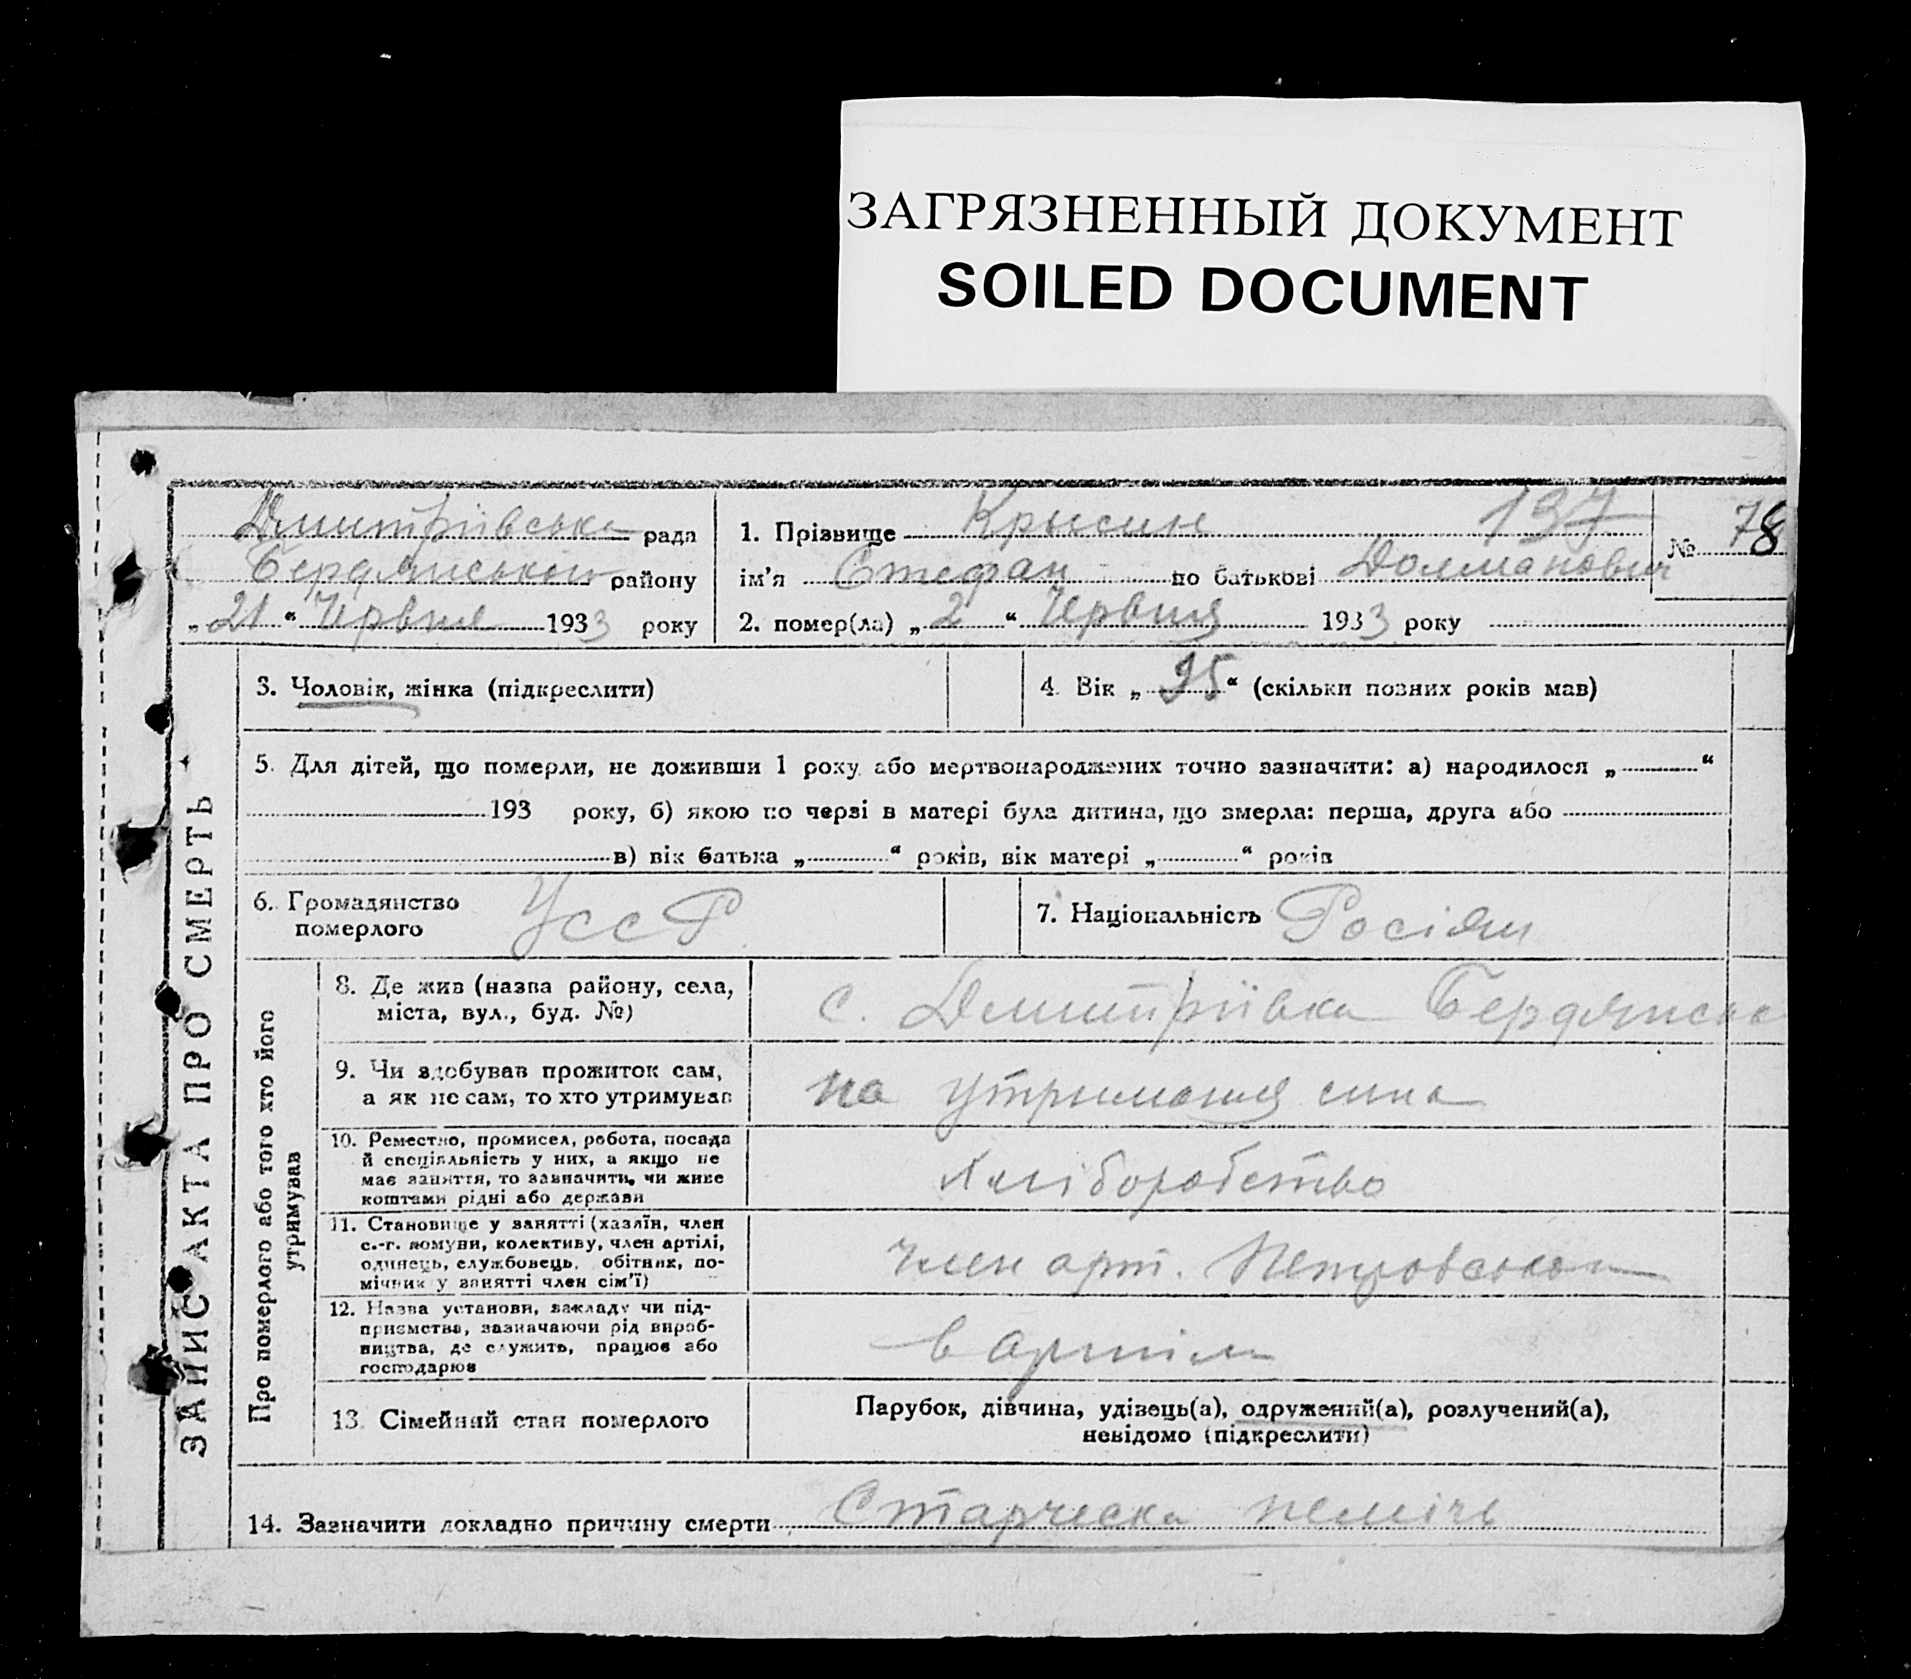 ЗАГРЯЗНЕННЫЙ ДОКУМЕНТ
SOILED DOCUMENT
ЗАПИС АКТА ПРО СМЕРТЬ
Дмитрівська рада
Бердянського району
„21“ Червня 1933 року
1. Прізвище Крысин 137
№ 78
ім'я Стефан по батькові
2. помер(ла) „2“ Червня 1933 року
3. Чоловік, жінка (підкреслити)
4. Вік „95“ (скільки повних років мав)
5. Для дітей, що померли, не доживши 1 року або мертвонароджених точно зазначити: а) народилося „ “
193 року, б) якою по черзі в матері була дитина, що змерла: перша, друга або
в) вік батька „ “ років, вік матері „ “ років
6. Громадянство
померлого
УССР
7. Національність Росіян
Про померлого або того хто його
утримував
8. Де жив (назва району, села,
міста, вул., буд. №)
с. Дмитрівка Бердянська
9. Чи здобував прожиток сам,
а як не сам, то хто утримував
на утримання сина
10. Реместно, промисел, робота, посада
й спеціяльність у них, а якщо не
має заняття, то зазначити, чи живе
коштами рідні або держави
Хліборобство
11. Становище у занятті (хазяїн, член
с.-г. комуни, колективу, член артілі,
одинець, службовець, обітник, по-
мічник у занятті член сім'ї)
член арт. Петровського
12. Назва установи, закладу чи під-
приємства, зазначаючи рід вироб-
ництва, де служить, працює або
господарює
в артіли
13. Сімейний стан померлого
Парубок, дівчина, удівець(а), одружений(а), розлучений(а),
невідомо (підкреслити)
14. Зазначити докладно причину смерти Старческа неміч